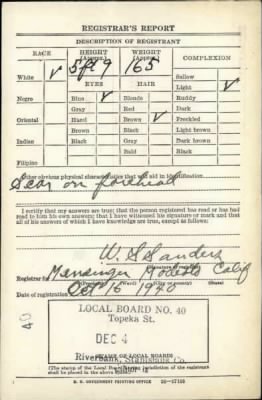 REGISTRAR'S REPORT
DESCRIPTION OF REGISTRANT
RACE HEIGHT (Approx.) WEIGHT (Approx.) COMPLEXION
5 ft 9 165
White ✓ EYES HAIR Sallow
Light ✓
Negro Blue ✓ Blonde Ruddy
Gray Red Dark
Oriental Hazel Brown ✓ Freckled
Brown Black Light brown
Indian Black Gray Dark brown
Bald Black
Filipino
Other obvious physical characteristics that will aid in identification
Scar on forehead
I certify that my answers are true; that the person registered has read or has had
read to him his own answers; that I have witnessed his signature or mark and that
all of his answers of which I have knowledge are true, except as follows:
W. S. Sanders
(Signature of registrar)
Registrar for Modesto Calif
(Ward) (City or county) (State)
Date of registration Oct 16 1940
LOCAL BOARD NO. 40
Topeka St.
DEC 4
Riverbank, Stanislaus Co.
STAMP OF LOCAL BOARD
40
(The stamp of the Local Board having jurisdiction of the registrant
shall be placed in the above space.)
U. S. GOVERNMENT PRINTING OFFICE 16—17105